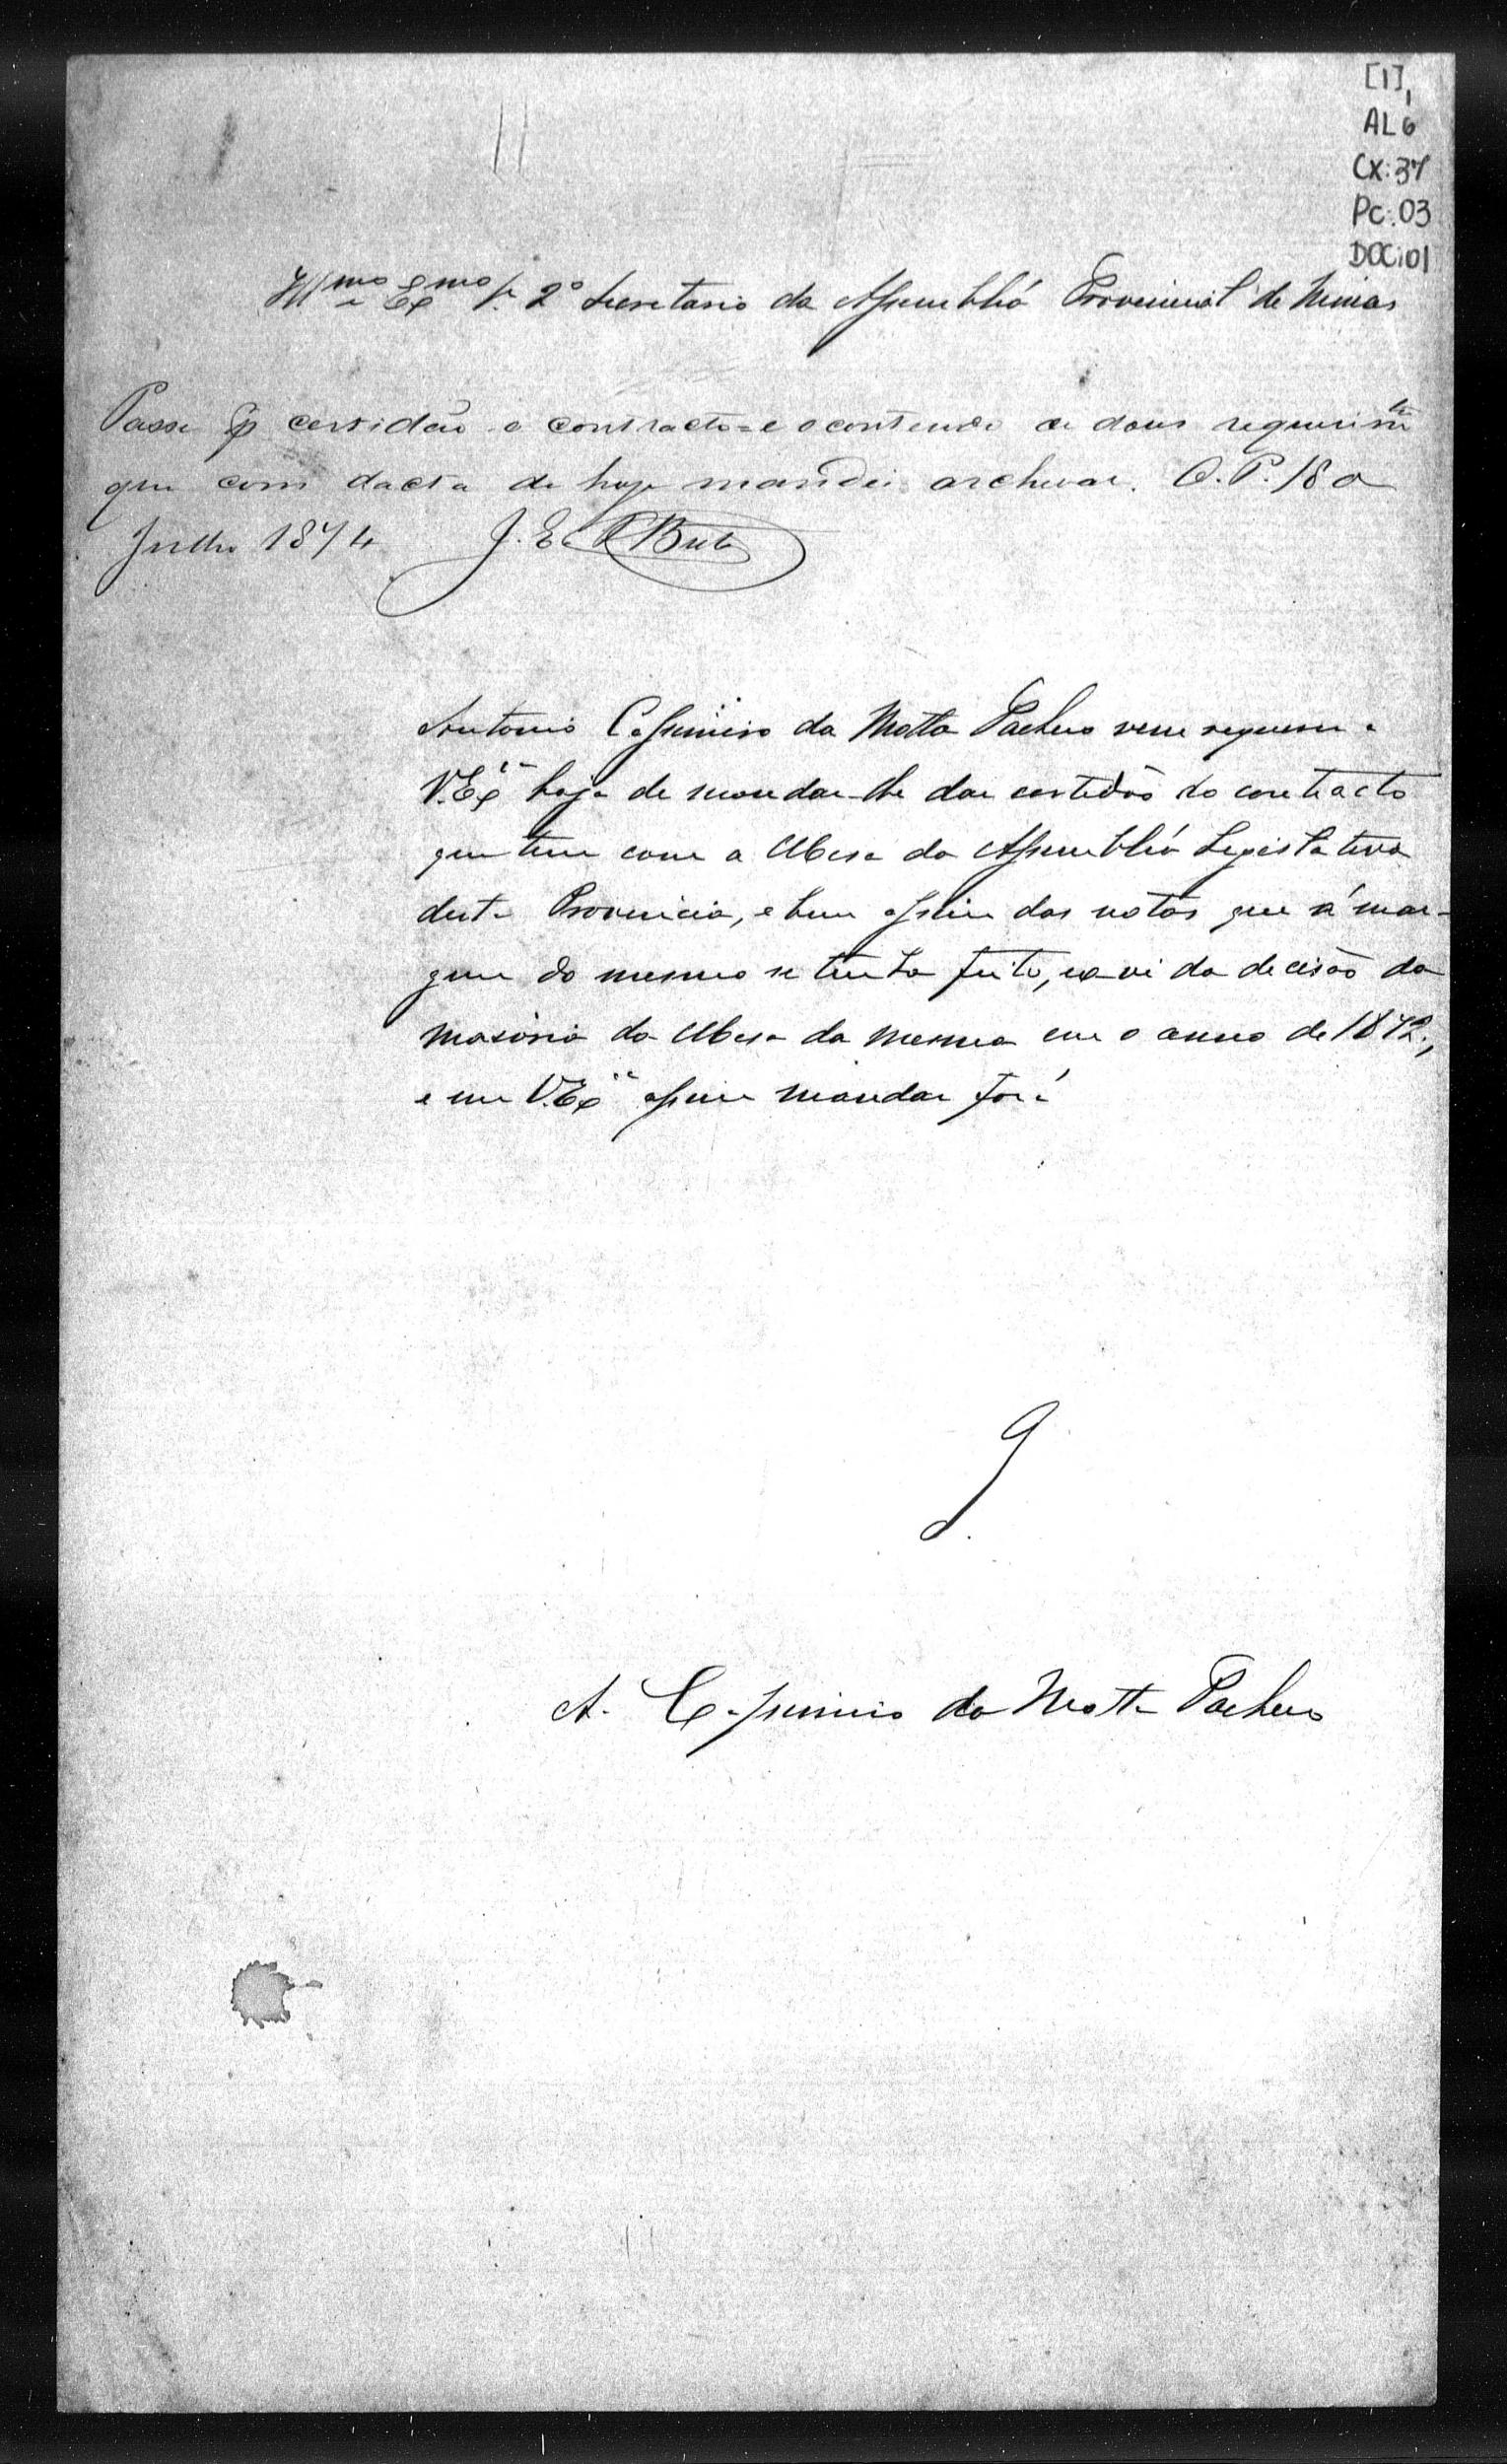 [1],
AL 6
Cx: 37
Pc: 03
DOC: 01
Ill.mo e Ex.mo Sr. 2º Secretario da Assembléa Provincial de Minas
Passe p certidão o contracto e o contendo de dous requerim.tos
que com dacta de hoje mandei archivar. O. P. 18 de
Julho 1874 J. E.
Antonio Cassimiro da Motta Pacheco vem requerer a
V. Ex.ª haja de mandar-lhe dar certidão do contracto
que tem com a Mesa da Assembléa Legislativa
desta Provincia, e bem assim das notas que á mar-
gem do mesmo se tenha feito, ex-vi da decisão da
maioria da Mesa da mesma em o anno de 1872;
e em V. Ex.ª assim mandar fará
J.
A. Cassimiro da Motta Pacheco